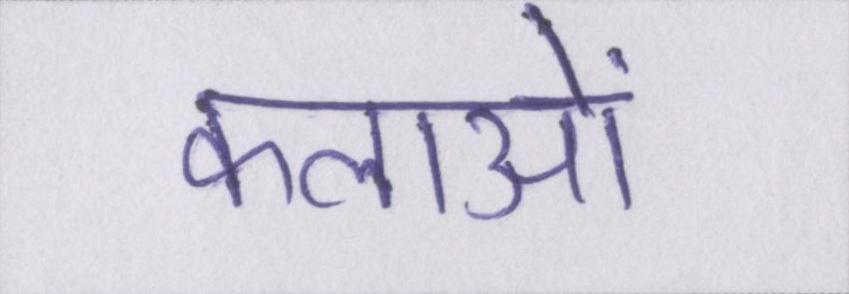 कलाओं